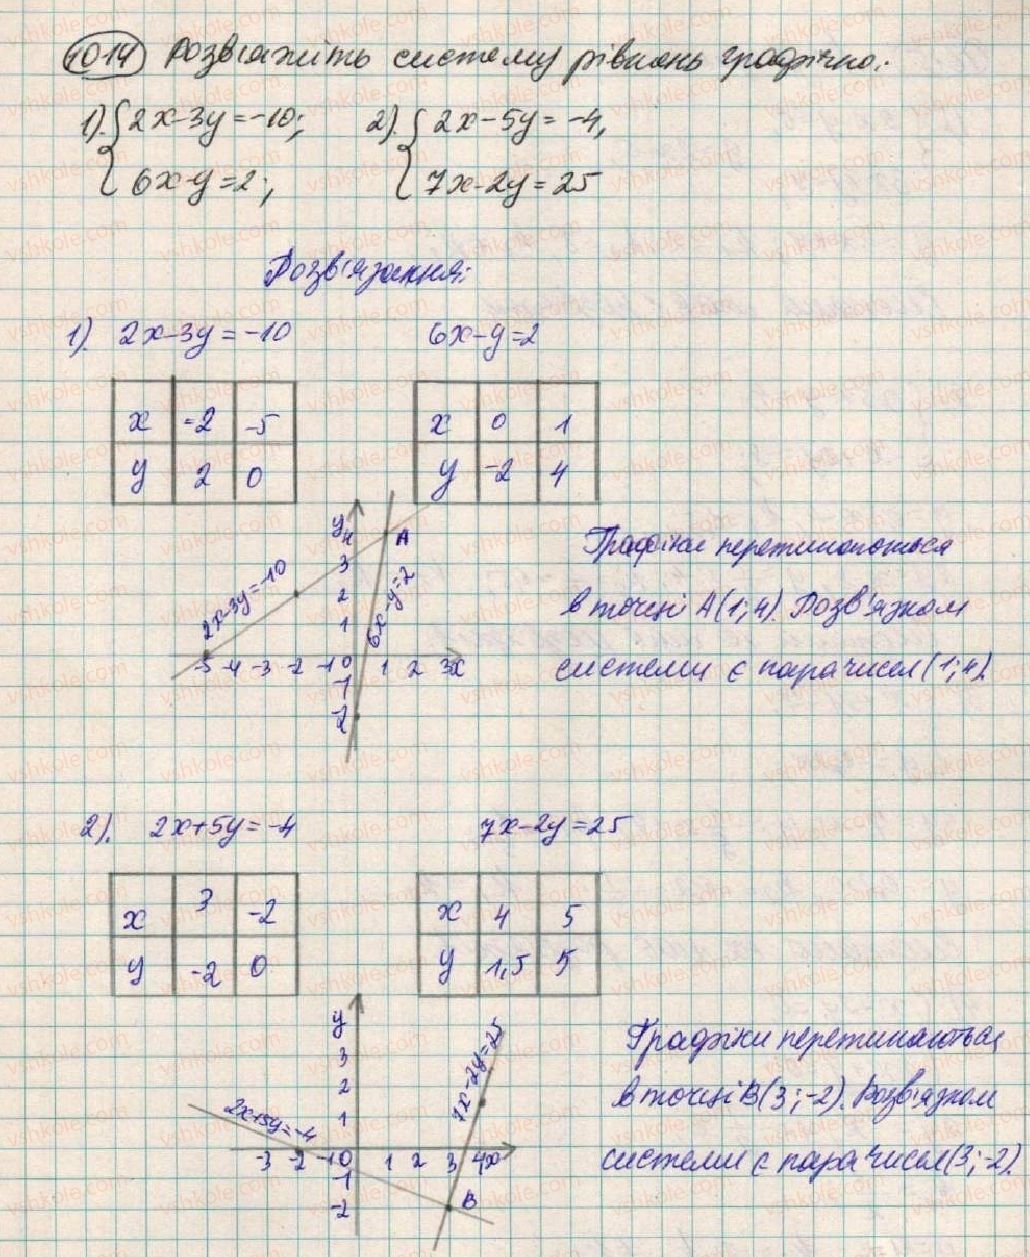 1014 Розв'яжіть систему рівнянь графічно:
1). { 2x-3y=-10; 2). { 2x-5y=-4,
6x-y=2; 7x-2y=25
Розв'язання:
1). 2x-3y=-10 6x-y=2
x -2 -5 x 0 1
y 2 0 y -2 4
y 4 A
3
2
1
2x-3y=-10 6x-y=2
-5 -4 -3 -2 -1 0 1 2 3 x
-1
-2
Графіки перетинаються
в точці A(1;4). Розв'язком
системи є пара чисел (1;4)
2). 2x+5y=-4 7x-2y=25
x 3 -2 x 4 5
y -2 0 y 1,5 5
y
3
2
1
2x+5y=-4 7x-2y=25
-3 -2 -1 0 1 2 3 4 x
-1
-2 B
Графіки перетинаються
в точці B(3;-2). Розв'язком
системи є пара чисел (3;-2).
vshkole.com